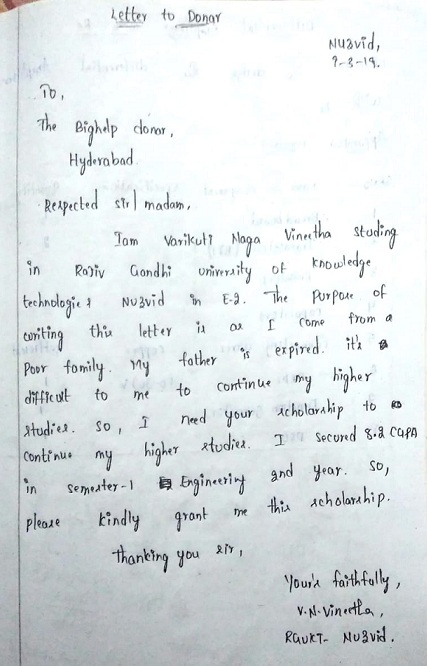 Letter to Donar
Nu3vid,
9-3-19.
To,
The Bighelp donar,
Hyderabad.
Respected sir/madam,
Iam Varikuti Naga Vineetha studing
in Rajiv Gandhi university of knowledge
technologies Nu3vid in E-2. The Purpose of
writing this letter is as I come from a
Poor family. My father is expired. it's
difficult to me to continue my higher
studies. so, I need your scholarship to
continue my higher studies. I secured 8.2 CGPA
in semester-1 Engineering 2nd year. So,
please kindly grant me this scholarship.
Thanking you sir,
Your's faithfully,
V.N.Vineetha,
RGUKT- Nu3vid.